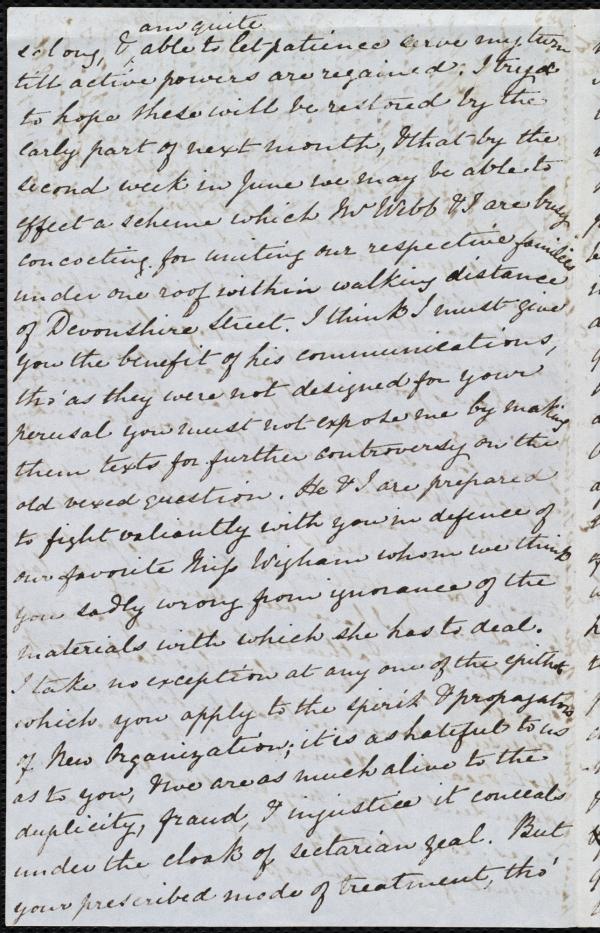 am quite
so long, & able to let patience serve my turn
till active powers are regained. I try
to hope these will be restored by the
early part of next month, & that by the
second week in June we may be able to
effect a scheme which Mr Webb & I are busy
concocting for uniting our respective families
under one roof within walking distance
of Devonshire Street. I think I must give
you the benefit of his communications,
tho' as they were not designed for your
perusal you must not expose me by making
them texts for further controversy on the
old vexed question. He & I are prepared
to fight valiantly with you in defence of
our favorite Miss Wigham whom we think
you sadly wrong from ignorance of the
materials with which she has to deal.
I take no exception at any one of the epithets
which you apply to the spirit & propagators
of New Organization; it is as hateful to us
as to you, & we are as much alive to the
duplicity, fraud, & injustice it conceals
under the cloak of sectarian zeal. But
your prescribed mode of treatment, tho'